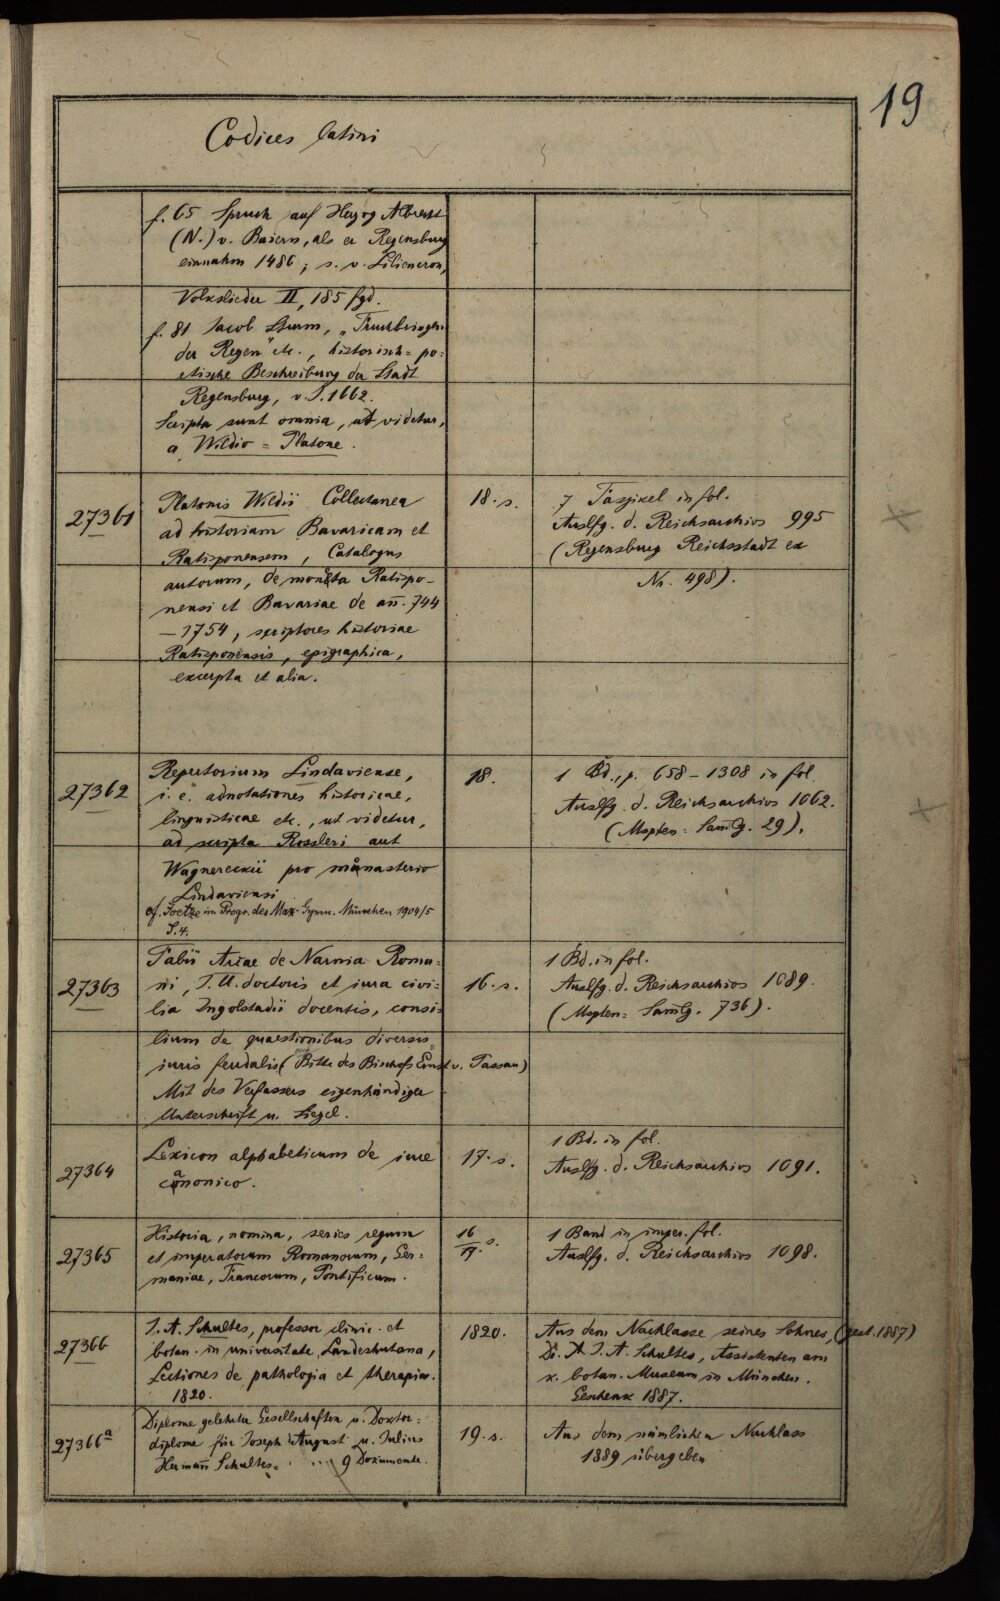 19
Codices latini
f. 65 Spruch auf Herzog Albrecht
(IV.) v. Baiern, als er Regensburg
einnahm 1486; s. v. Liliencron,
Volkslieder II, 185 fgd.
f. 81 Jacob Sturm, "
der Regen" etc., historisch=po=
etische Beschreibung der Stadt
Regensburg, v. J. 1662.
Scripta sunt omnia, ut videtur,
a Wildio = Platone.
27361
Platonis Wildii Collectanea
ad historiam Bavaricam et
Ratisponensem, Catalogus
autorum, de moneta Ratispo-
nensi et Bavariae de añ. 744
– 1754, scriptores historiae
Ratisponensis, epigraphica,
excerpta et alia.
18. s.
7 Faszikel in fol.
Auslfg. d. Reichsarchivs 995
(Regensburg Reichsstadt ex
Nr. 498).
27362
Repertorium Lindaviense,
i. e. adnotationes historicae,
linguisticae etc., ut videtur,
ad scripta Rossleri aut
Wagnereckii pro monasterio
Lindaviensi
cf. Joetze im Progr. des Max-Gymn. München 1904/5
S. 4.
18.
1 Bd., p. 658–1308 in fol.
Auslfg. d. Reichsarchivs 1062.
(Mspten= Sam̄lg. 29).
27363
Fabii Arcae de Narnia Roma=
ni, J. U. doctoris et iura civi=
lia Ingolstadii docentis, consi=
lium de quaestionibus diversis
iuris feudalis (Bitte des Bischofs Ernst v. Passau)
Mit des Verfassers eigenhändiger
Unterschrift u. Siegel.
16. s.
1 Bd. in fol.
Auslfg. d. Reichsarchivs 1089.
(Mspten= Sam̄lg. 736).
27364
Lexicon alphabeticum de iure
canonico.
17. s.
1 Bd. in fol.
Auslfg. d. Reichsarchivs 1091.
27365
Historia, nomina, series regum
et imperatorum Romanorum, Ger=
maniae, Francorum, Pontificum.
16/17. s.
1 Band in imper. fol.
Auslfg. d. Reichsarchivs 1098.
27366
J. A. Schultes, professor clinic. et
botan. in universitate Landeshutana,
Lectiones de pathologia et therapia.
1820.
1820.
Aus dem Nachlasse seines Sohnes, (gest. 1887)
Dr. A. J. A. Schultes, Assistenten am
k. botan. Museum in München.
Geschenk 1887.
27366a
Diplome gelehrter Gesellschaften u. Doktor=
diplome für Joseph August u. Julius
Hermañ Schultes. . . . 9 Dokumente.
19. s.
Aus dem nämlichen Nachlass
1889 übergeben